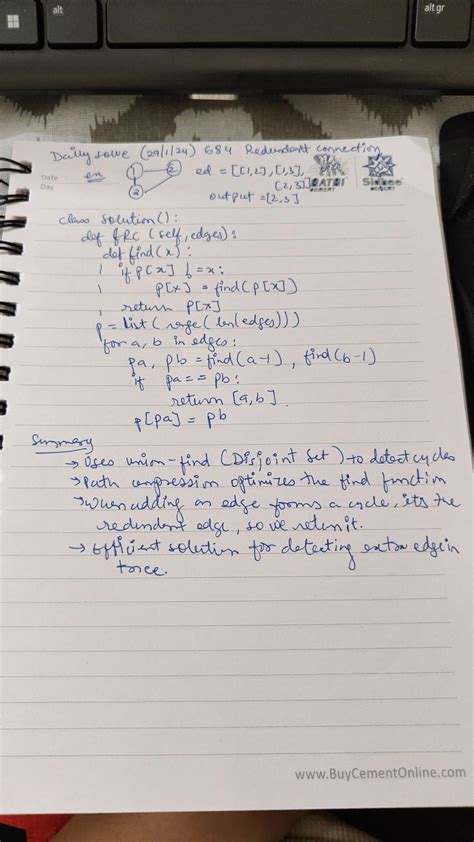 alt
alt gr
Daily solve (29/1/24) 684 Redundant connection
Date
Day
ex
1
2
3
ed = [[1,2], [1,3],
[2,3]]
output = [2,3]
class Solution():
def fRC (self, edges):
def find(x):
if p[x] != x:
p[x] = find(p[x])
return p[x]
p = list(range(len(edges)))
for a, b in edges:
pa, pb = find(a-1), find(b-1)
if pa == pb:
return [a,b]
p[pa] = pb
Summary
→ Uses union-find (Disjoint Set) to detect cycles
→ Path compression optimizes the find function
→ When adding an edge forms a cycle, its the
redundant edge, so we return it.
→ Efficient solution for detecting extra edge in
www.BuyCementOnline.com